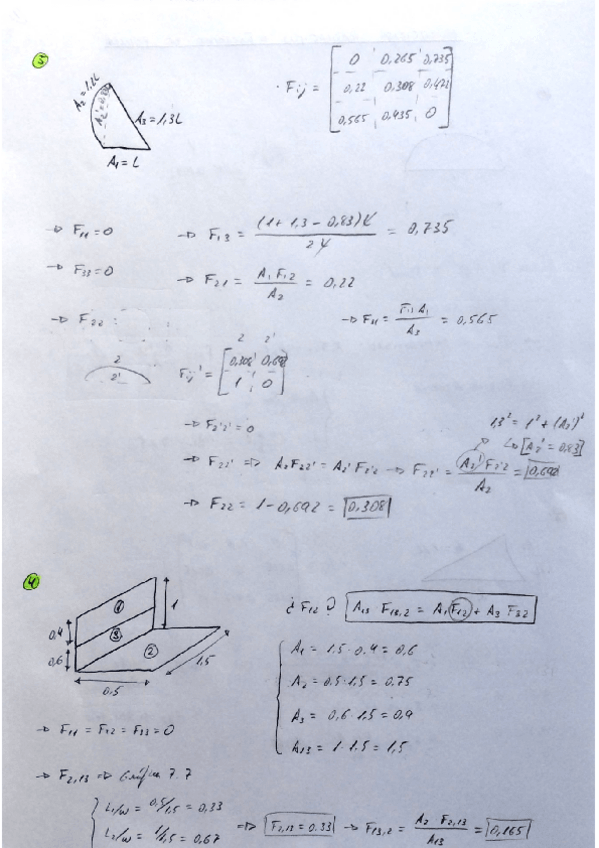 3
A₂ = 1,2L
A₃ = 1,3L
A₁ = L
Fij = [ 0 0,265 0,735
0,22 0,308 0,472
0,565 0,435 0 ]
→ F₁₁ = 0
→ F₁₃ = (1 + 1,3 − 0,83)L / 2L = 0,735
→ F₃₃ = 0
→ F₂₁ = A₁ F₁₂ / A₂ = 0,22
→ F₂₂ :
= F₁₃ A₁ / A₃ = 0,565
2
2'
Fij' =
2 2'
[ 0,308 0,692
1 0 ]
→ F₂'₂' = 0
1,3² = 1² + (A₂')²
↳ [A₂' = 0,83]
→ F₂₂' ⇒ A₂F₂₂' = A₂' F₂'₂ → F₂₂' = A₂' F₂'₂ / A₂ = 0,692
→ F₂₂ = 1 − 0,692 = 0,308
4
1
3
2
1
0.4
0.6
0.5
1,5
¿ F₁₂ ? A₁₃ F₁₃,₂ = A₁ F₁₂ + A₃ F₃₂
A₁ = 1,5 · 0.4 = 0,6
A₂ = 0.5 · 1.5 = 0.75
A₃ = 0,6 · 1,5 = 0,9
A₁₃ = 1 · 1.5 = 1,5
→ F₁₁ = F₁₂ = F₂₂ = 0
→ F₂,₁₃ ⇒ Gráfica 7.7
L₁/w = 0,5/1,5 = 0,33
L₂/w = 1/1,5 = 0,67
⇒ F₂,₁₃ = 0.33 → F₁₃,₂ = A₂ F₂,₁₃ / A₁₃ = 0,165